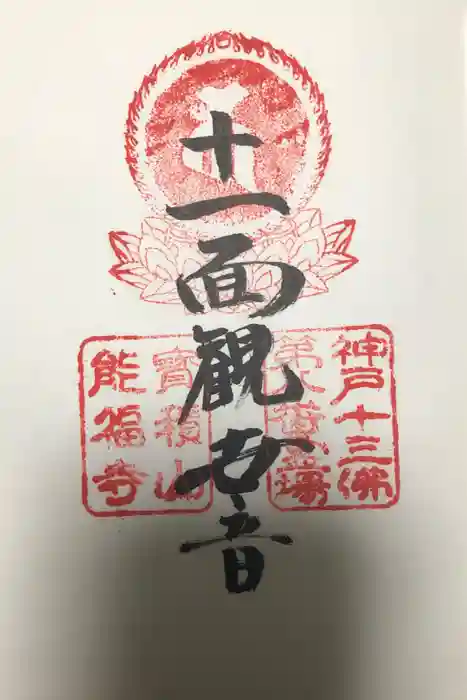 神戸十三佛
第八番霊場
十一面観世音
寶積山
能福寺